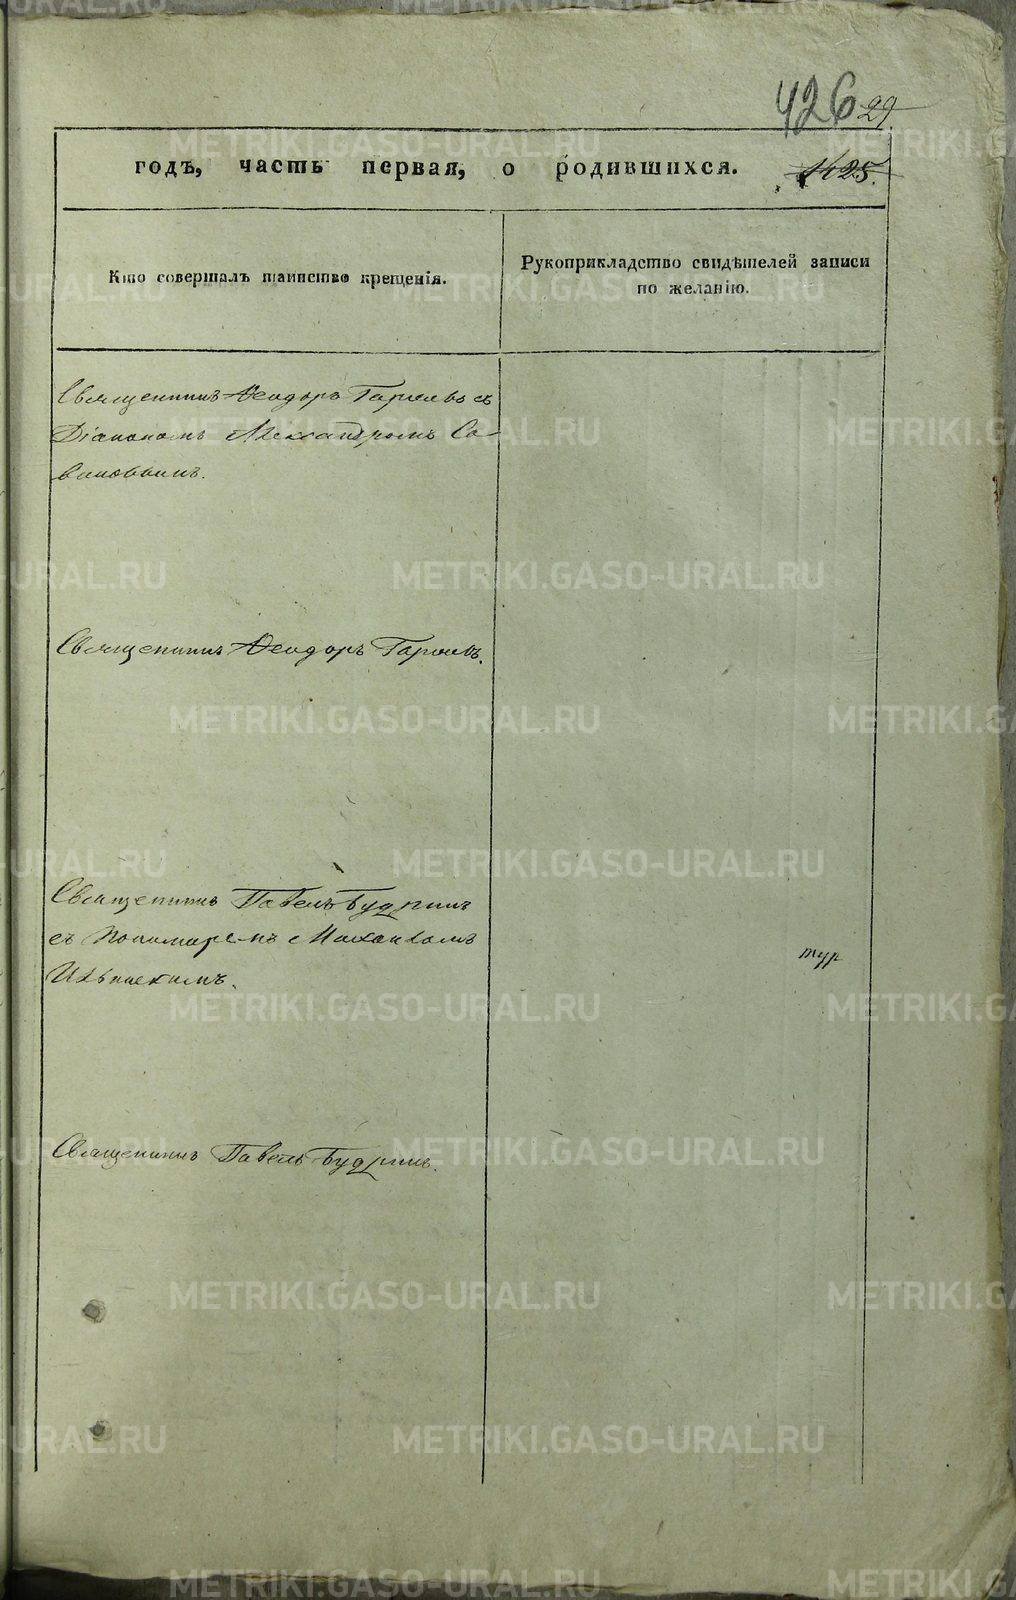 426 29
годъ, часть первая, о родившихся. 1425.
Кто совершалъ таинство крещенія.
Рукоприкладство свидѣтелей записи
по желанію.
Священникъ Ѳеодоръ съ
Діакономъ Александромъ Са-
виновымъ.
Священникъ Ѳеодоръ
Священникъ Павелъ Будринъ
съ Пономаремъ Михаиломъ
Ильинскимъ.
тур
Священникъ Павелъ Будринъ.
METRIKI.GASO-URAL.RU